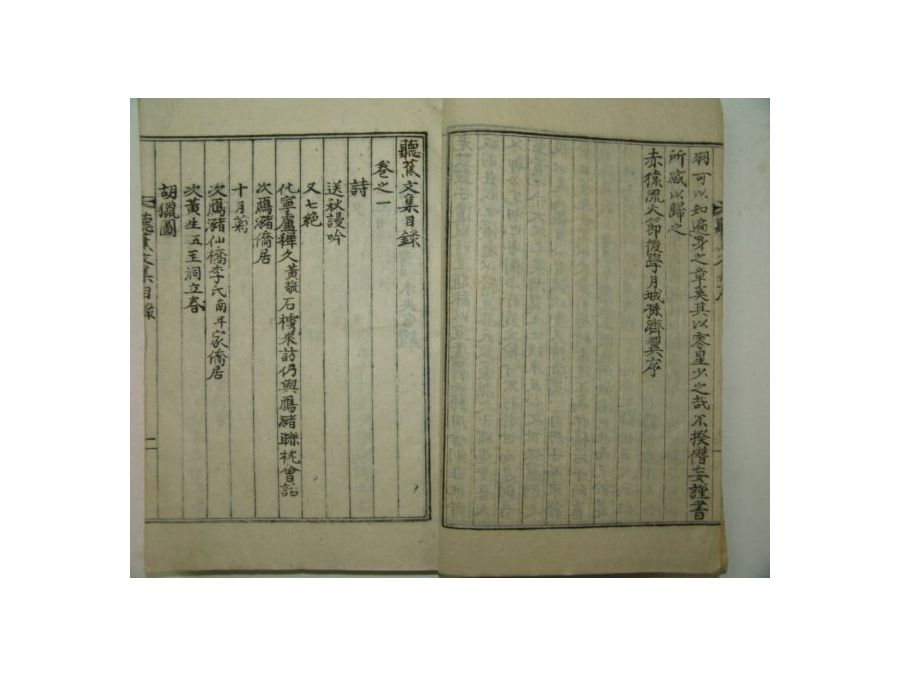 羽可以知遍身之章矣其以零星少之哉不揆僭妄謹書
所感以歸之
赤猿流火節後學月城孫濟翼序
聽蕉文集目錄
卷之一
詩
送秋謾吟
又七絶
化寧盧穉久黃敬石槫來訪仍與鴈瀦聯枕會話
次鴈瀦僑居
十月菊
次鴈瀦仙橋李氏南年家僑居
次黃生五王洞立春
胡獵圖
聽蕉文集目錄
一